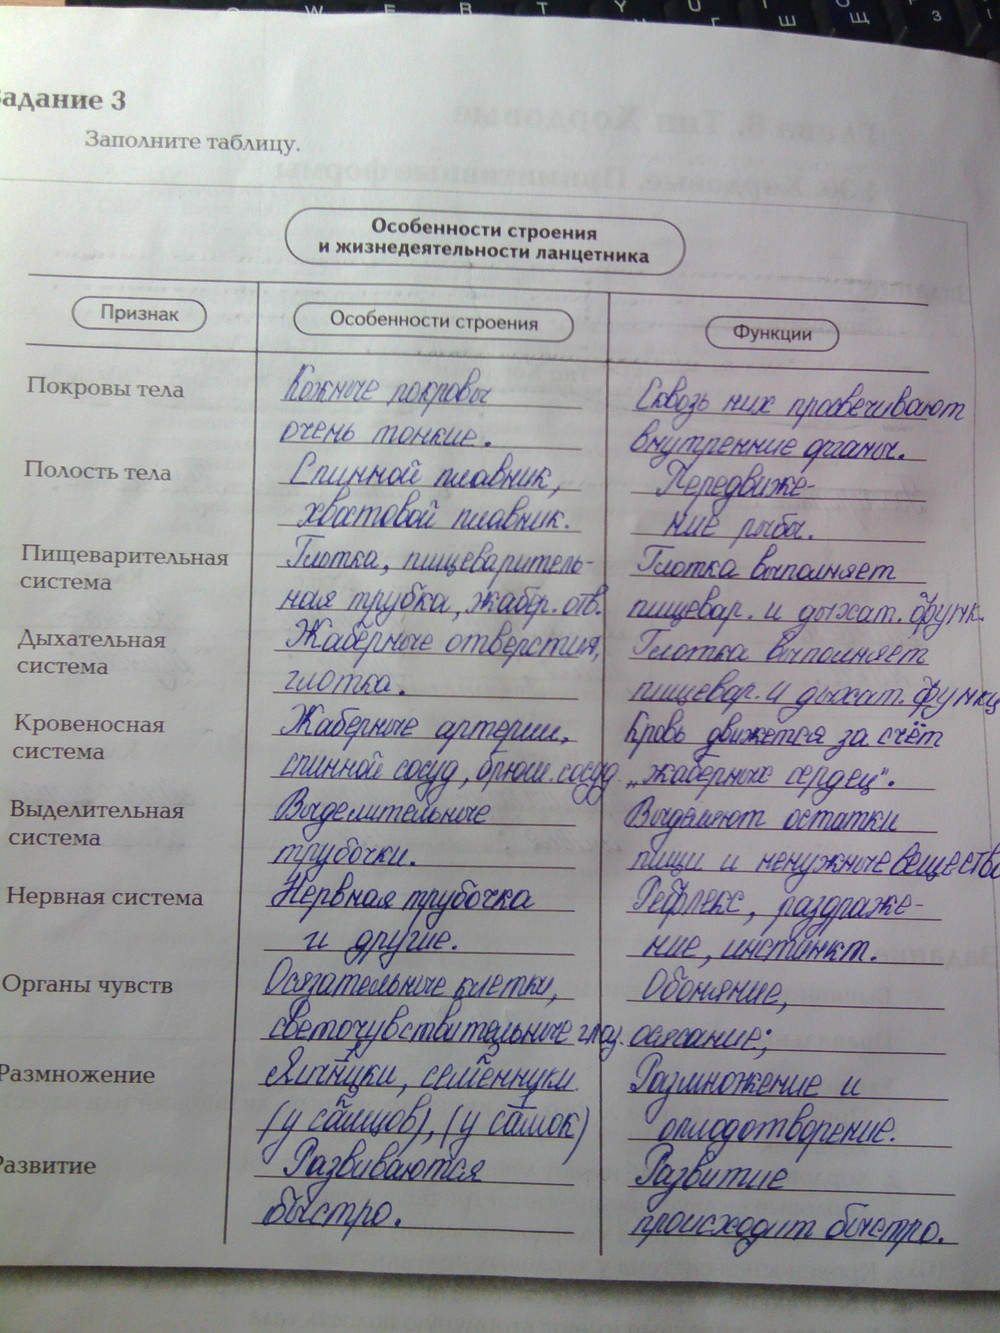 W E R T Y U
Г Ш Щ З
Задание 3
Заполните таблицу.
Особенности строения
и жизнедеятельности ланцетника
Признак
Особенности строения
Функции
Покровы тела
Кожные покровы
очень тонкие.
Сквозь них просвечивают
внутренние органы.
Полость тела
Спинной плавник,
хвостовой плавник.
Передвиже-
ние рыбы.
Пищеварительная
система
Глотка, пищеваритель-
ная трубка, жабер. отв.
Глотка выполняет
пищевар. и дыхат. функ.
Дыхательная
система
Жаберные отверстия,
глотка.
Глотка выполняет
пищевар. и дыхат. функц
Кровеносная
система
Жаберные артерии,
спинной сосуд, брюш. сосуд.
Кровь движется за счёт
„жаберных сердец".
Выделительная
система
Выделительные
трубочки.
Выделяют остатки
пищи и ненужные вещества
Нервная система
Нервная трубочка
и другие.
Рефлекс, раздраже-
ние, инстинкт.
Органы чувств
Осязательные клетки,
светочувствительные глаз.
Обоняние,
осязание;
Размножение
Яичники, семенники
(у самцов), (у самок)
Размножение и
оплодотворение.
Развитие
Развиваются
быстро.
Развитие
происходит быстро.